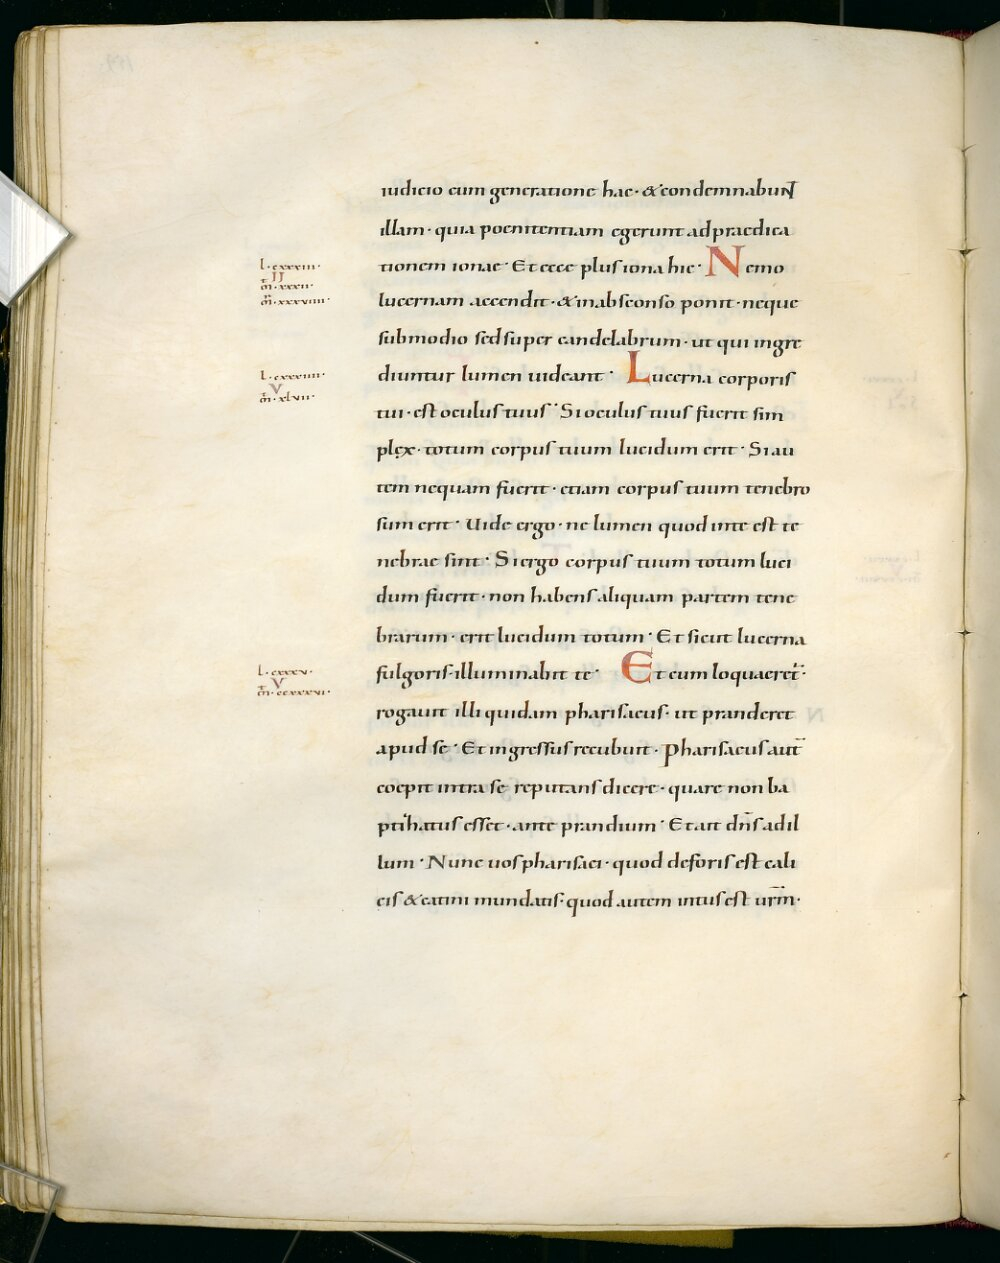 iudicio cum generatione hac· & condemnabunt
illam· quia poenitentiam egerunt ad praedica
l·cxxxiii·
tionem ionae· Et ecce plus iona hic· Nemo
II
m̄·xxxii·
m̄r·xxxviiii·
lucernam accendit· & in absconso ponit· neque
sub modio sed super candelabrum· ut qui ingre
l·cxxxiiii·
diuntur lumen uideant· Lucerna corporis
V
m̄·xlvii·
tui· est oculus tuus· Si oculus tuus fuerit sim
plex· totum corpus tuum lucidum erit· Si au
tem nequam fuerit· etiam corpus tuum tenebro
sum erit· Uide ergo· ne lumen quod in te est te
nebrae sint· Si ergo corpus tuum totum luci
dum fuerit· non habens aliquam partem tene
brarum· erit lucidum totum· Et sicut lucerna
l·cxxxv·
fulgoris· illuminabit te· Et cum loqueret̄·
V
m̄·ccxxxvi·
rogauit illi quidam pharisaeus· ut pranderet
apud se· Et ingressus recubuit· Pharisaeus aut̄
coepit intra se reputans dicere· quare non ba
ptihatus esset· ante prandium· Et ait dn̄s ad il
lum· Nunc uos pharisaei· quod deforis est cali
cis & catini mundatis· quod autem intus est ur̄m·